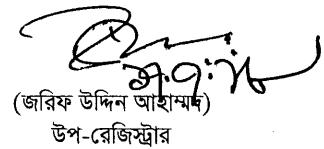 (জরিফ উদ্দিন আহাম্মদ)
উপ-রেজিস্ট্রার